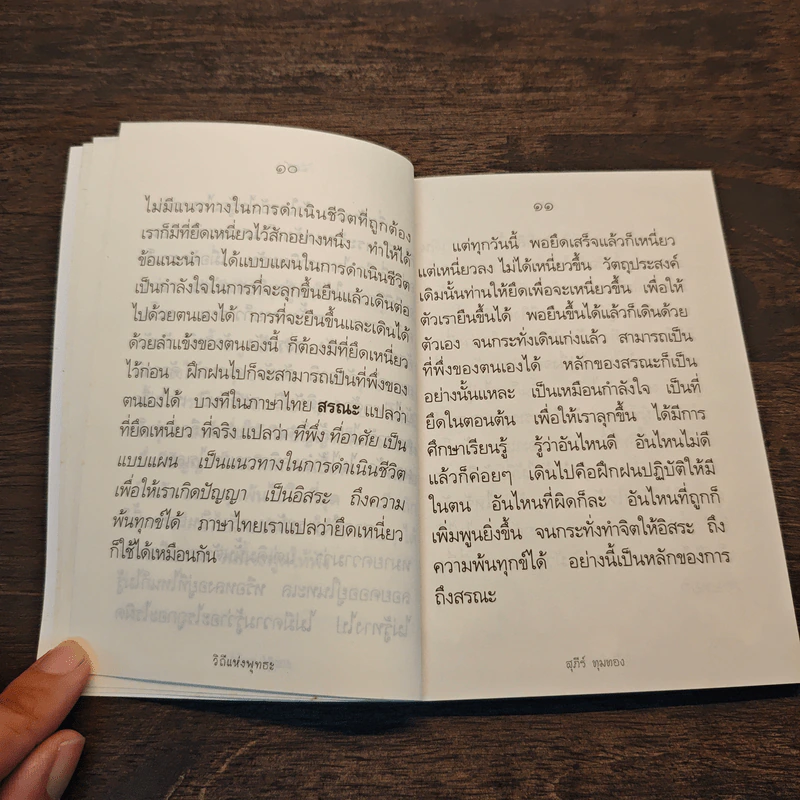 ๑๐
ไม่มีแนวทางในการดำเนินชีวิตที่ถูกต้อง
เราก็มีที่ยึดเหนี่ยวไว้สักอย่างหนึ่ง ทำให้ได้
ข้อแนะนำ ได้แบบแผนในการดำเนินชีวิต
เป็นกำลังใจในการที่จะลุกขึ้นยืนแล้วเดินต่อ
ไปด้วยตนเองได้ การที่จะยืนขึ้นและเดินได้
ด้วยลำแข้งของตนเองนี้ ก็ต้องมีที่ยึดเหนี่ยว
ไว้ก่อน ฝึกฝนไปก็จะสามารถเป็นที่พึ่งของ
ตนเองได้ บางทีในภาษาไทย สรณะ แปลว่า
ที่ยึดเหนี่ยว ที่จริง แปลว่า ที่พึ่ง ที่อาศัย เป็น
แบบแผน เป็นแนวทางในการดำเนินชีวิต
เพื่อให้เราเกิดปัญญา เป็นอิสระ ถึงความ
พ้นทุกข์ได้ ภาษาไทยเราแปลว่ายึดเหนี่ยว
ก็ใช้ได้เหมือนกัน
วิถีแห่งพุทธะ
๑๑
แต่ทุกวันนี้ พอยึดเสร็จแล้วก็เหนี่ยว
แต่เหนี่ยวลง ไม่ได้เหนี่ยวขึ้น วัตถุประสงค์
เดิมนั้นท่านให้ยึดเพื่อจะเหนี่ยวขึ้น เพื่อให้
ตัวเรายืนขึ้นได้ พอยืนขึ้นได้แล้วก็เดินด้วย
ตัวเอง จนกระทั่งเดินเก่งแล้ว สามารถเป็น
ที่พึ่งของตนเองได้ หลักของสรณะก็เป็น
อย่างนั้นแหละ เป็นเหมือนกำลังใจ เป็นที่
ยึดในตอนต้น เพื่อให้เราลุกขึ้น ได้มีการ
ศึกษาเรียนรู้ รู้ว่าอันไหนดี อันไหนไม่ดี
แล้วก็ค่อยๆ เดินไปคือฝึกฝนปฏิบัติให้มี
ในตน อันไหนที่ผิดก็ละ อันไหนที่ถูกก็
เพิ่มพูนยิ่งขึ้น จนกระทั่งทำจิตให้อิสระ ถึง
ความพ้นทุกข์ได้ อย่างนี้เป็นหลักของการ
ถึงสรณะ
สุภีร์ ทุมทอง